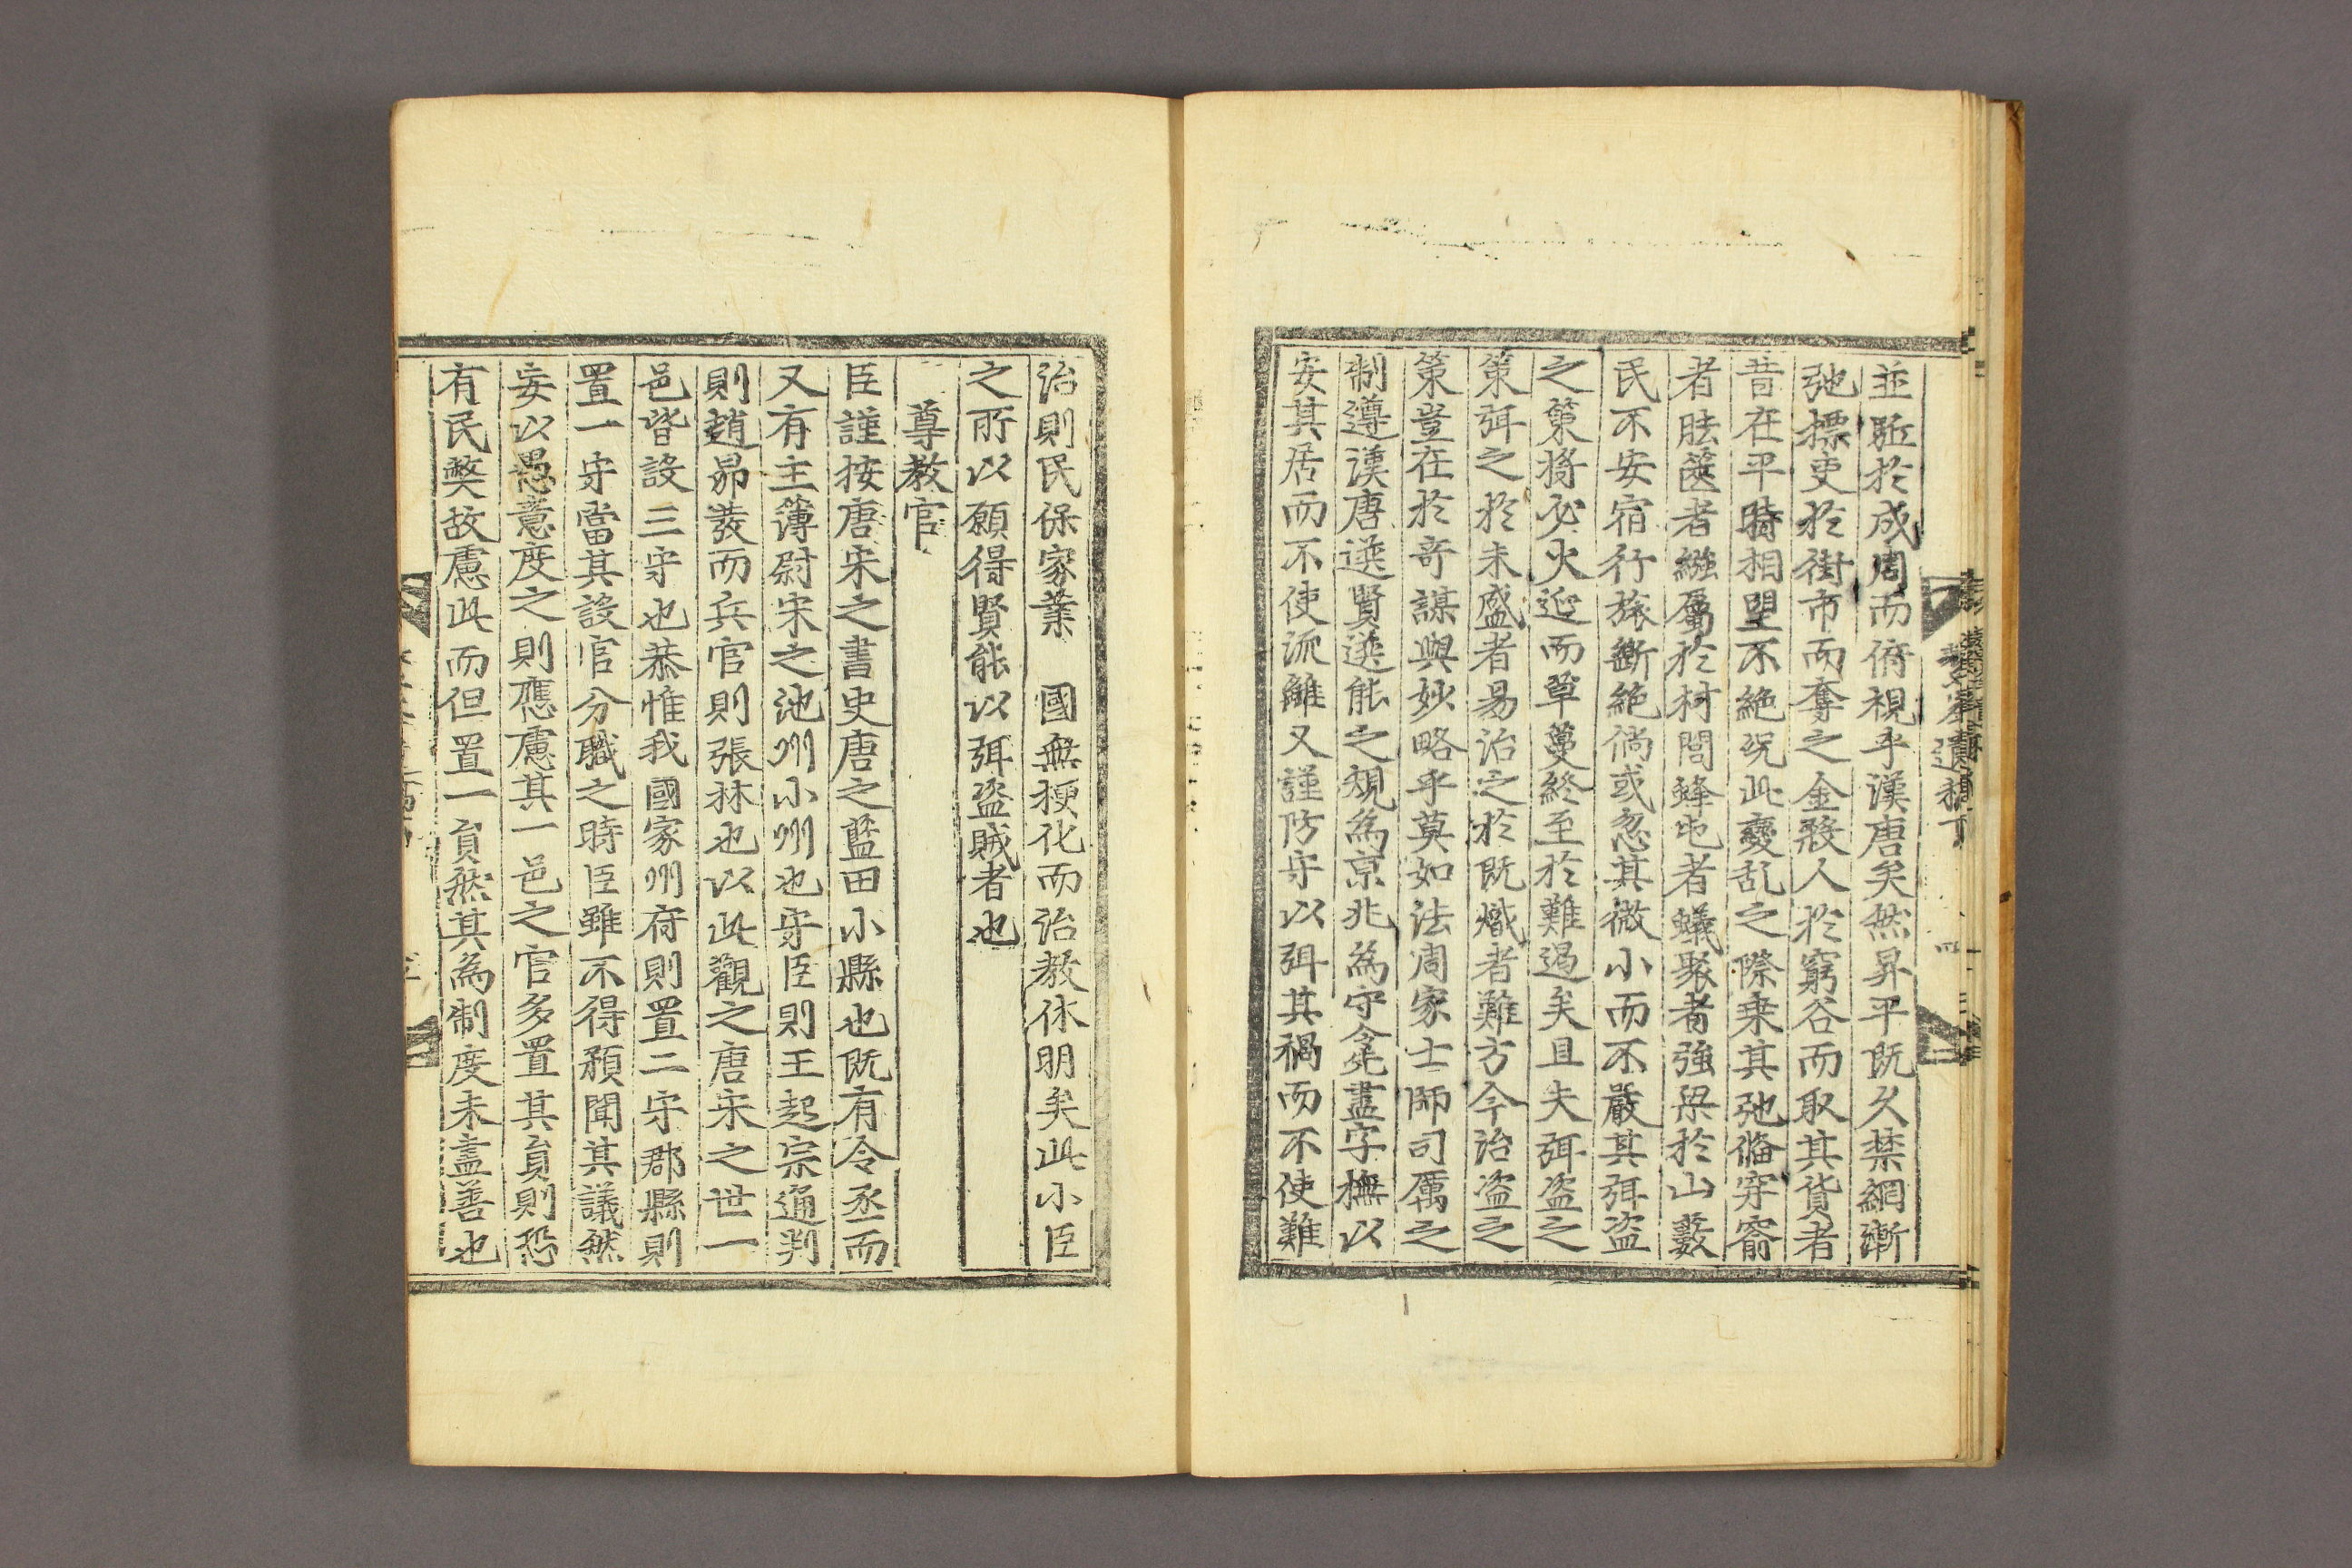 並駈於成周而俯視乎漢唐矣然昇平旣久禁網漸
弛摽吏於街市而奪之金殺人於窮谷而取其貨者
昔在平時相望不絶况此變乱之際乗其弛俻穿窬
者胠篋者繦属於村閭蜂屯者蟻聚者強梁於山藪
民不安宿行旅斷絶倘或忽其微小而不嚴其弭盜
之策將必火迊而草蔓終至於難遏矣且夫弭盗之
策弭之於未盛者易治之於旣熾者難方今治盗之
策豈在於奇謀與妙略乎莫如法周家士師司厲之
制遵漢唐選賢選能之規爲京兆爲守令凭盡字撫以
安其居而不使流離又謹防守以弭其禍而不使難
治則民保家業 國無梗化而治教休明矣此小臣
之所以願得賢能以弭盗賊者也
尊教官
臣謹按唐宋之書史唐之藍田小縣也旣有令丞而
又有主簿尉宋之池州小州也守臣則王起宗通判
則趙昴發而兵官則張林也以此觀之唐宋之世一
邑皆設三守也恭惟我國家州府則置二守郡縣則
置一守當其設官分職之時臣雖不得預聞其議然
妄以愚意度之則應慮其一邑之官多置其負則恐
有民獘故慮此而但置一負然其爲制度未盡善也